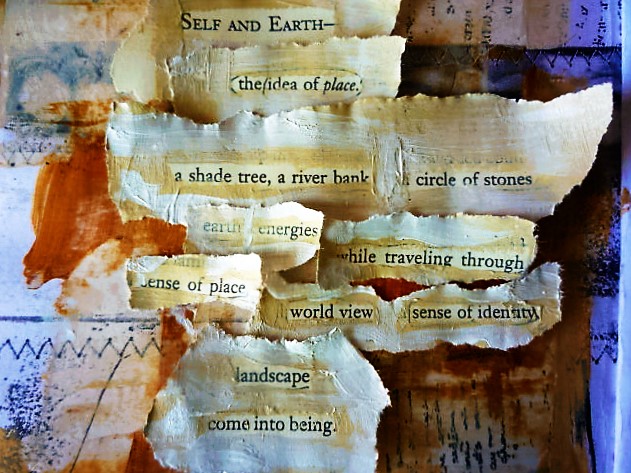 SELF AND EARTH—
the idea of place.
a shade tree, a river bank circle of stones
earth energies
while traveling through
sense of place
world view sense of identity
landscape
come into being.